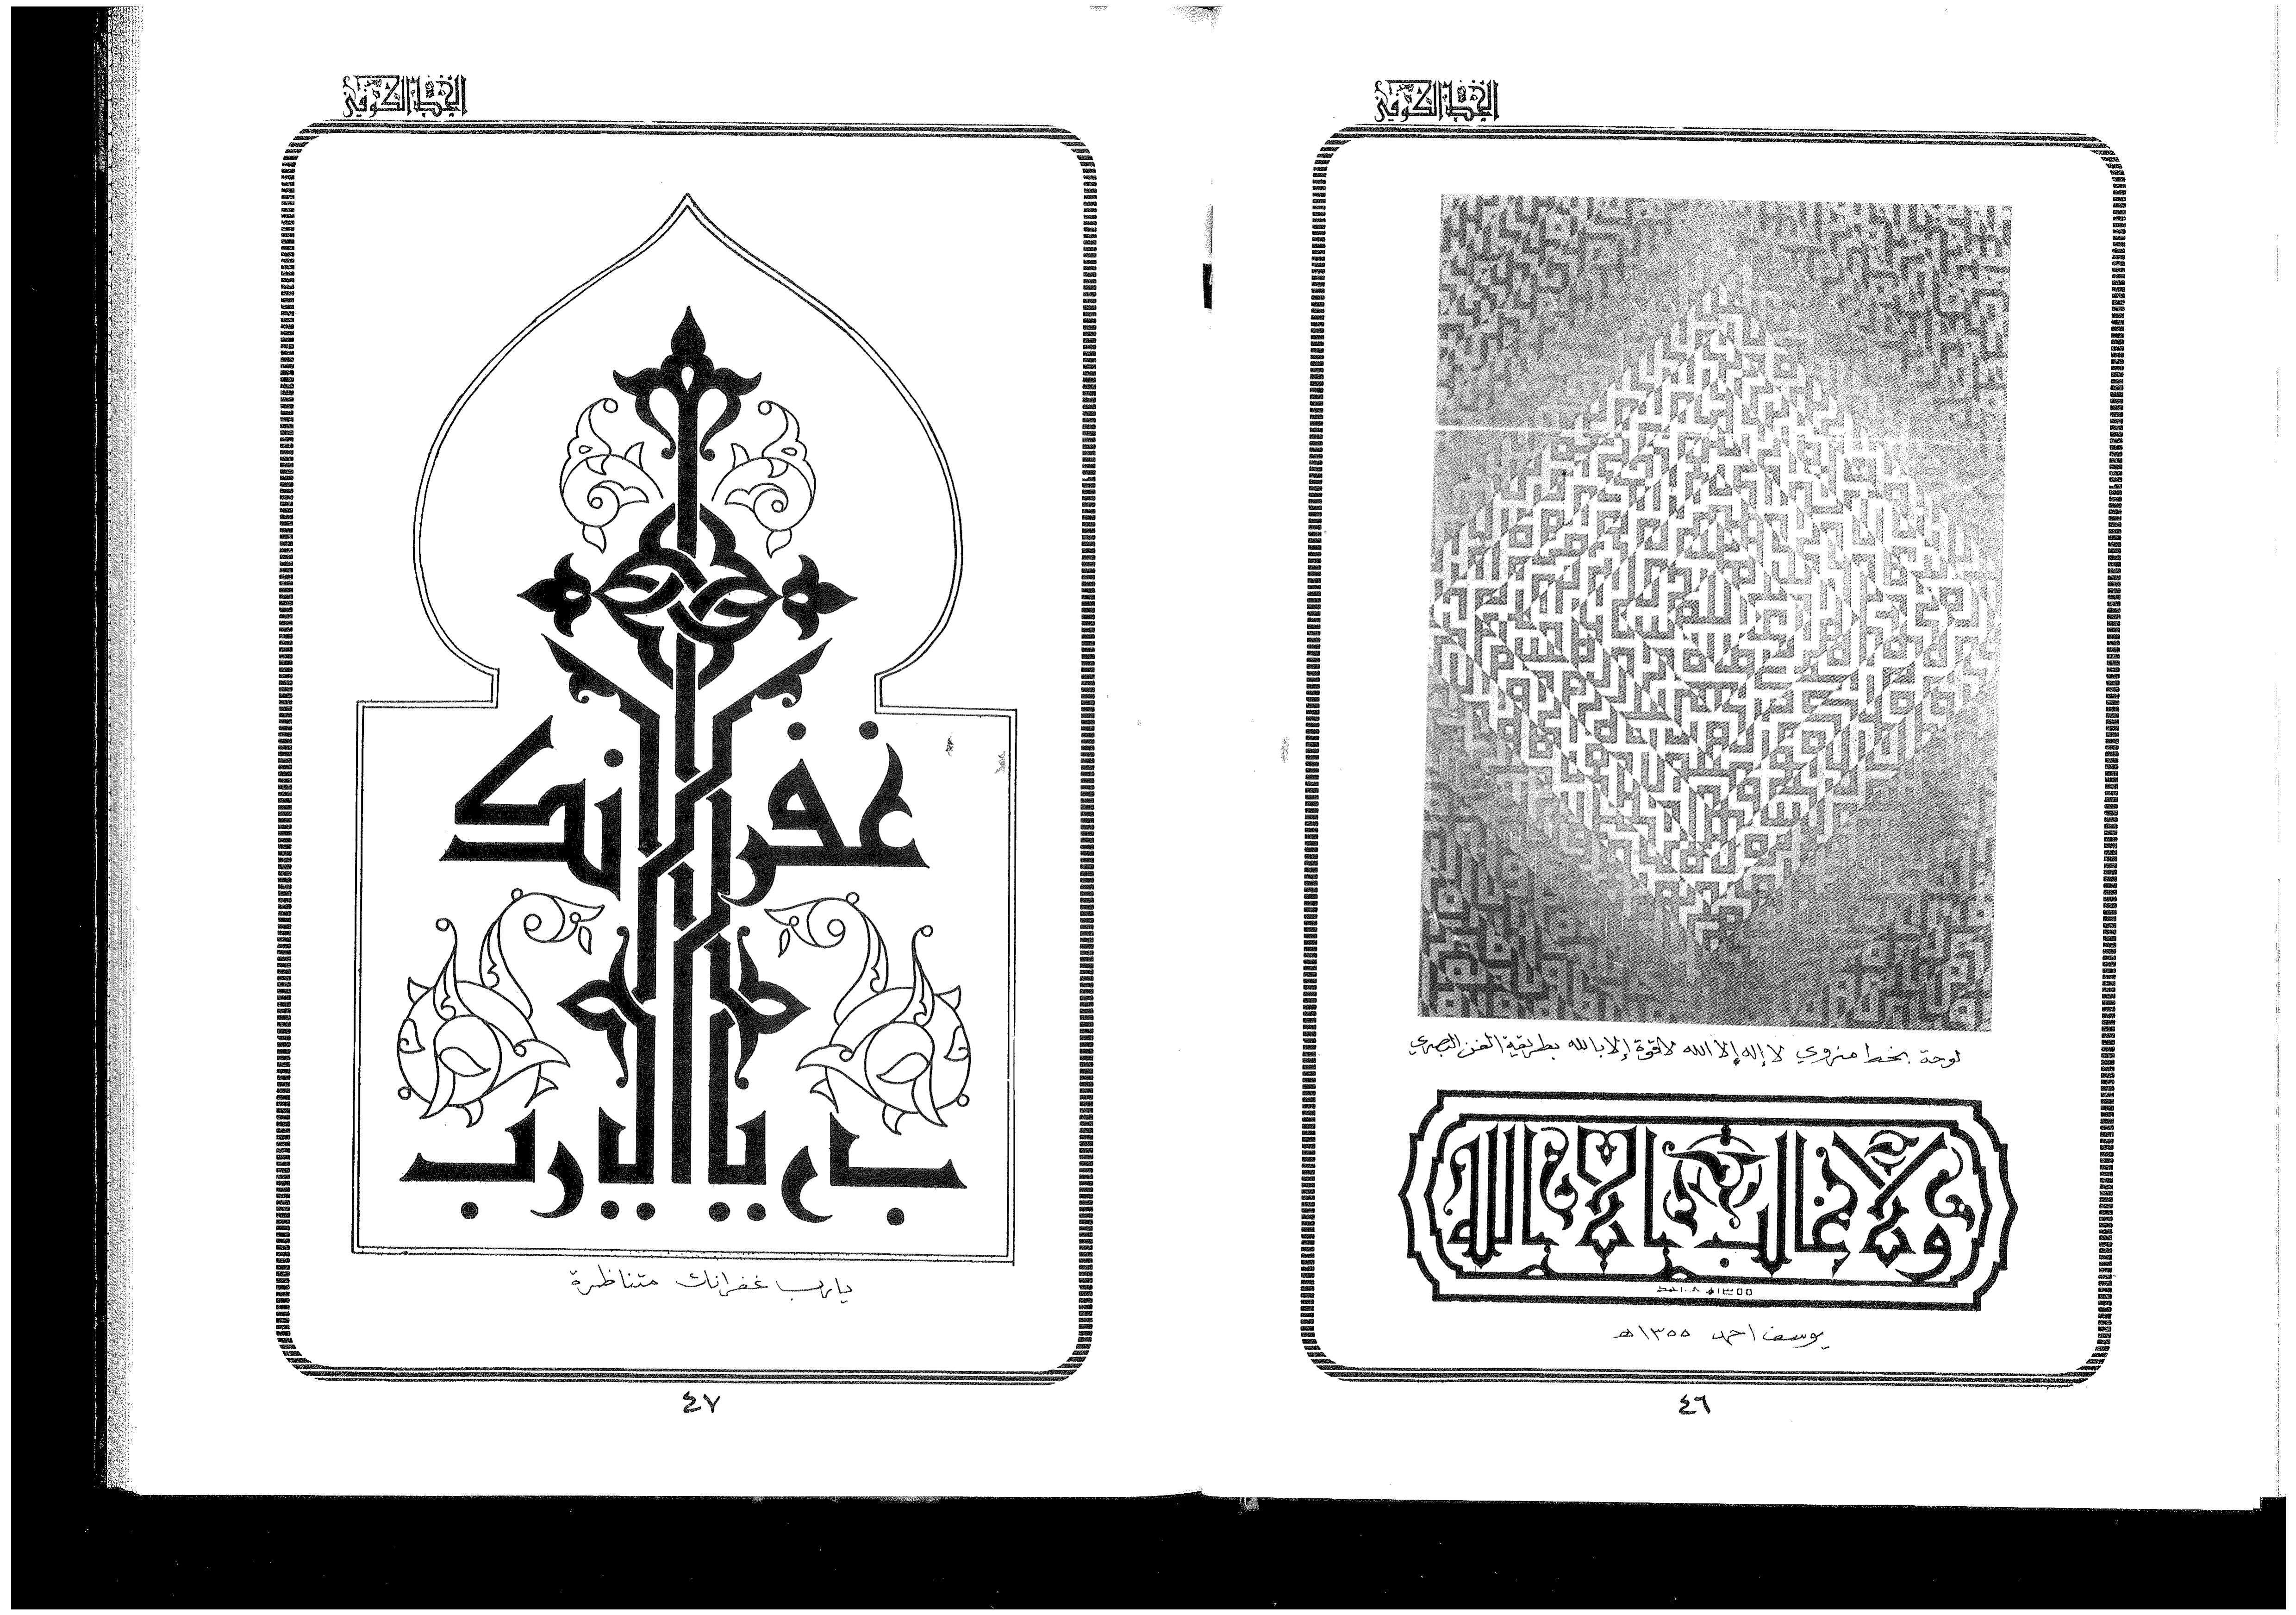 الخط الكوفي
لوحة بخط مزوي لا إله إلا الله لا قوة إلا بالله بطريقة الفن البصري
ولا غالب إلا الله
يوسف احمد ١٣٥٥هـ
٤٦
الخط الكوفي
غفرانك
يا رب
يارب غفرانك متناظرة
٤٧